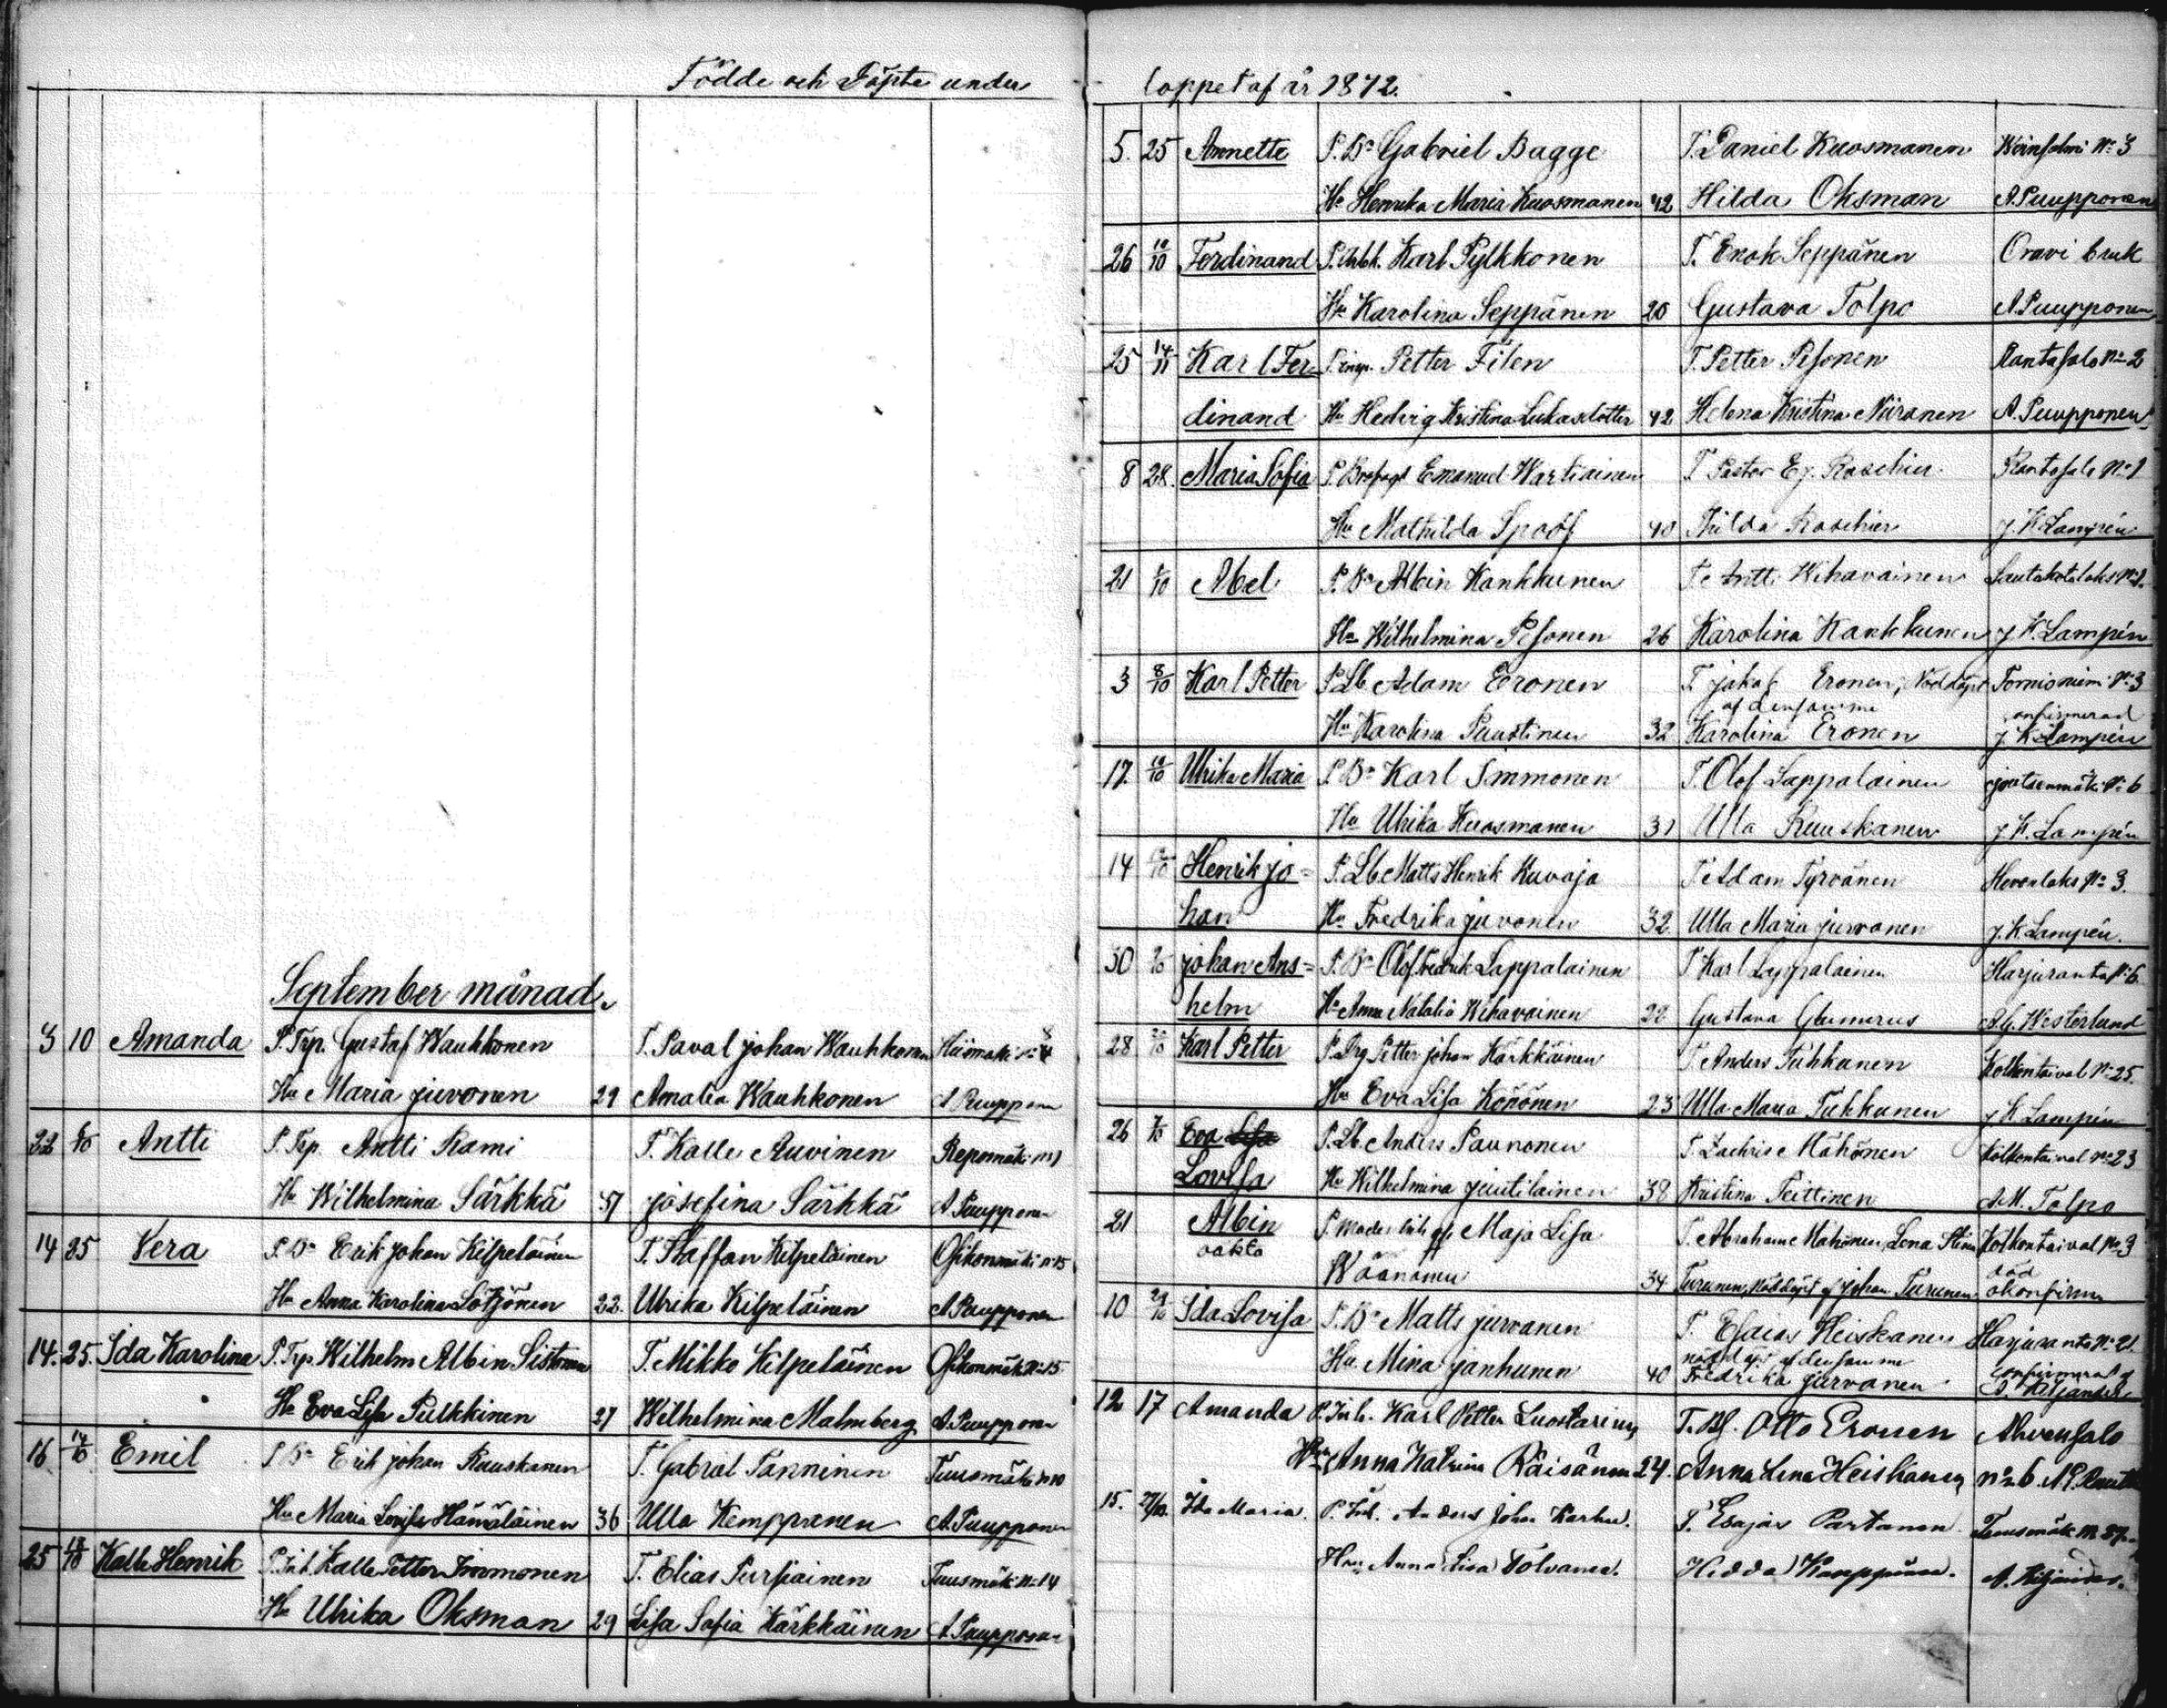 Födde och Döpte under
loppet af år 1872.
September månad.
3 10 Amanda P. Trp. Gustaf Wauhkonen T. Paval johan Wauhkonen Hiismäki
Hu Maria juvonen 29 Amalia Wauhkonen A Puupponen
22 Antti P. Trp. Antti Rami T. Kalle Auvinen Repomäki
Hu Wilhelmina Särkkä 37 josefina Särkkä A. Puupponen
14 25 Vera P. Bo Erik johan Kilpeläinen T. Staffan Kilpeläinen Osikonmäki n:15
Hu Anna Karolina Lötjönen 22. Ulrika Kilpeläinen A. Puupponen
14. 25. Ida Karolina P. Trp. Wilhelm Albin Sistonen T. Mikko Kilpeläinen Osikonmäki N:15
Hu Eva Lisa Pulkkinen 27 Wilhelmina Malmberg A. Puupponen
16 14/10 Emil P Bo Erik johan Ruuskanen T. Gabriel Tanninen Tuusmäki n:10
Hu Maria Lovisa Hämäläinen 36 Ulla Kemppanen A. Puupponen
25 Kalle Henrik P. Inh. Kalle Petter Immonen T. Elias Pursiainen Tuusmäki N:14
Hu Ulrika Oksman 29 Lisa Sofia Kärkkäinen A Puupponen
5. 25 Annette P. Bo Gabriel Bagge T. Daniel Kuosmanen N:o 3
Hu Henrika Maria Kuosmanen 42 Hilda Oksman A. Puupponen
26 10/10 Ferdinand P. Arbk. Karl Pylkkonen T. Enok Seppänen Oravi bruk
Hu Karolina Seppänen 20 Gustava Tolpo A. Puupponen
25 14/11 Karl Fer- P. Inhys. Petter Filen T. Petter Pesonen Rantasalo N:o 2
dinand Hu Hedvig Kristina Lukasdotter 42 Helena Kristina Niiranen A. Puupponen
8 28. Maria Sofia P. Emanuel Wartiainen T Pastor Ej. Roschier Rantasalo N:o 1
Hu Mathilda Spoof 40 Thilda Roschier J. K. Lampén
21 Abel P. Bo Albin Kankkunen T. Antti Wihavainen
Hu Wilhelmina Pesonen 26 Karolina Kankkunen J K. Lampén
3 8/10 Karl Petter P. Lb. Adam Eronen T jakob Eronen, Nöddöpt Tornioniemi N:o 3
af densamme confirmerad
Hu Karolina Puustinen 32 Karolina Eronen J. K. Lampén
17. Ulrika Maria P Bo Karl Immonen T. Olof Lappalainen joutsenmäki N:o 6
Hu Ulrika Kuosmanen 31 Ulla Ruuskanen J. K. Lampén
14 Henrik jo= P. Lb. Matts Henrik Kuvaja T Adam Tyrvänen N:o 3.
han Hu Fredrika juvonen 32 Ulla Maria jurvanen J. K. Lampén.
30 johan Ans= P. Bo Olof Fredrik Lappalainen T Karl Lappalainen Harjuranta N:6
helm Hu Anna Natalia Wihavainen 22 Gustava A. G. Westerlund
28 Karl Petter Petter johan Kärkkäinen T Anders Tuhkanen Kolkontaival N:o 25.
Hu Eva Lisa Könönen 23 Ulla Maria Tuhkunen J K. Lampén
26 Eva Lisa P. Lb. Anders Paunonen T. Zachris Mähönen Kolkontaival n:o 23
Lovisa Hu Wilhelmina juutilainen 38 Kristina Teittinen A. M. Tolpo
21 Albin P. Maja Lisa T. Abraham Mähönen, Lena Stina Kolkontaival N:o 3
oäkta död
Wäänänen 34 Turunen, Nöddöpt af johan Turunen okonfirm
10 Ida Lovisa P. Bo Matts jurvanen T. Esaias Heiskanen Harjuranta N:o 21.
nöddöpt af densamme
Hu. Mina janhunen 40 Fredrika jurvanen A. Kiljander
12 17 Amanda P. Inh. Karl Petter Luostarinen T. Otto Eronen Ahvensalo
Hu Anna Katrina Räisänen 24. Anna Lena Heiskanen n:o 6
15. Ida Maria. P. Inh. Anders Johan Karhu. T. Esajas Partanen. Tuusmäki
Hu Anna Lisa Tolvanen. Hedda A. Kiljander.